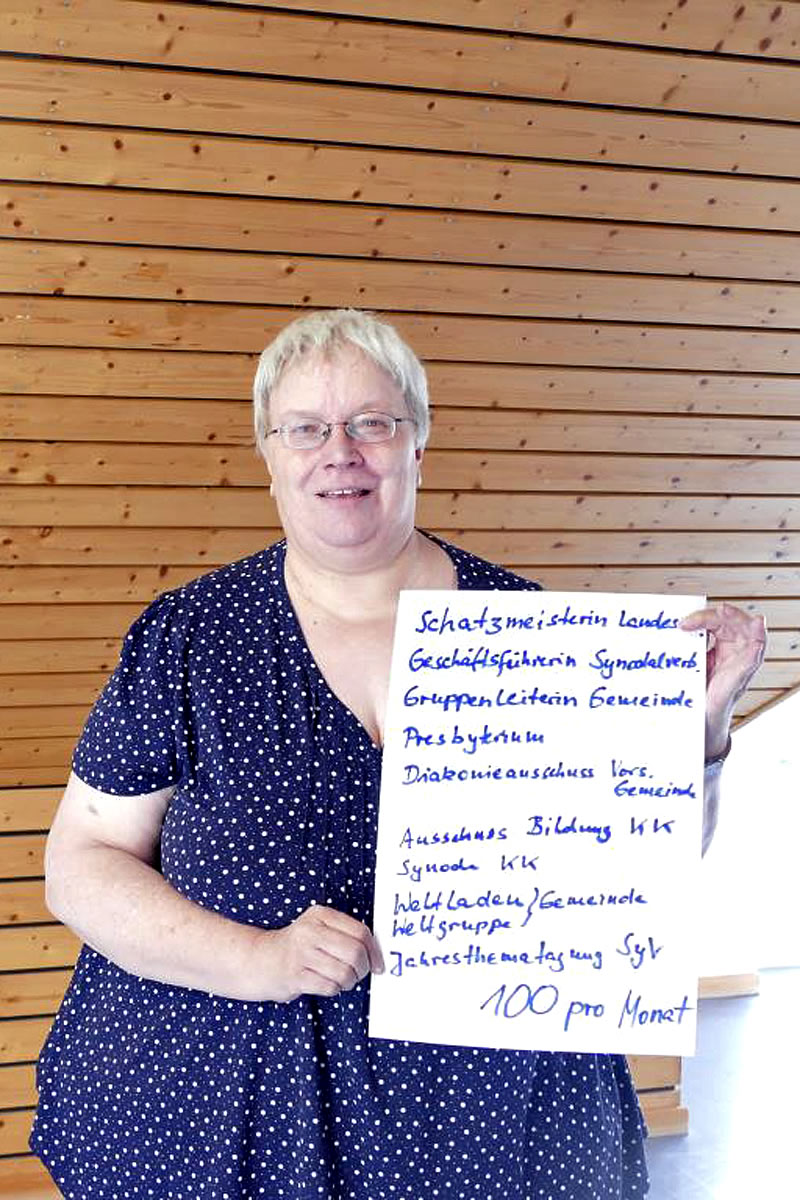 Schatzmeisterin Landes
Geschäftsführerin Synodalverb.
Gruppenleiterin Gemeinde
Presbyterium
Diakonieausschuss Vors.
Gemeinde
Ausschuss Bildung KK
Synode KK
Weltladen } Gemeinde
Weltgruppe
Jahresthematagung SyV
100 pro Monat